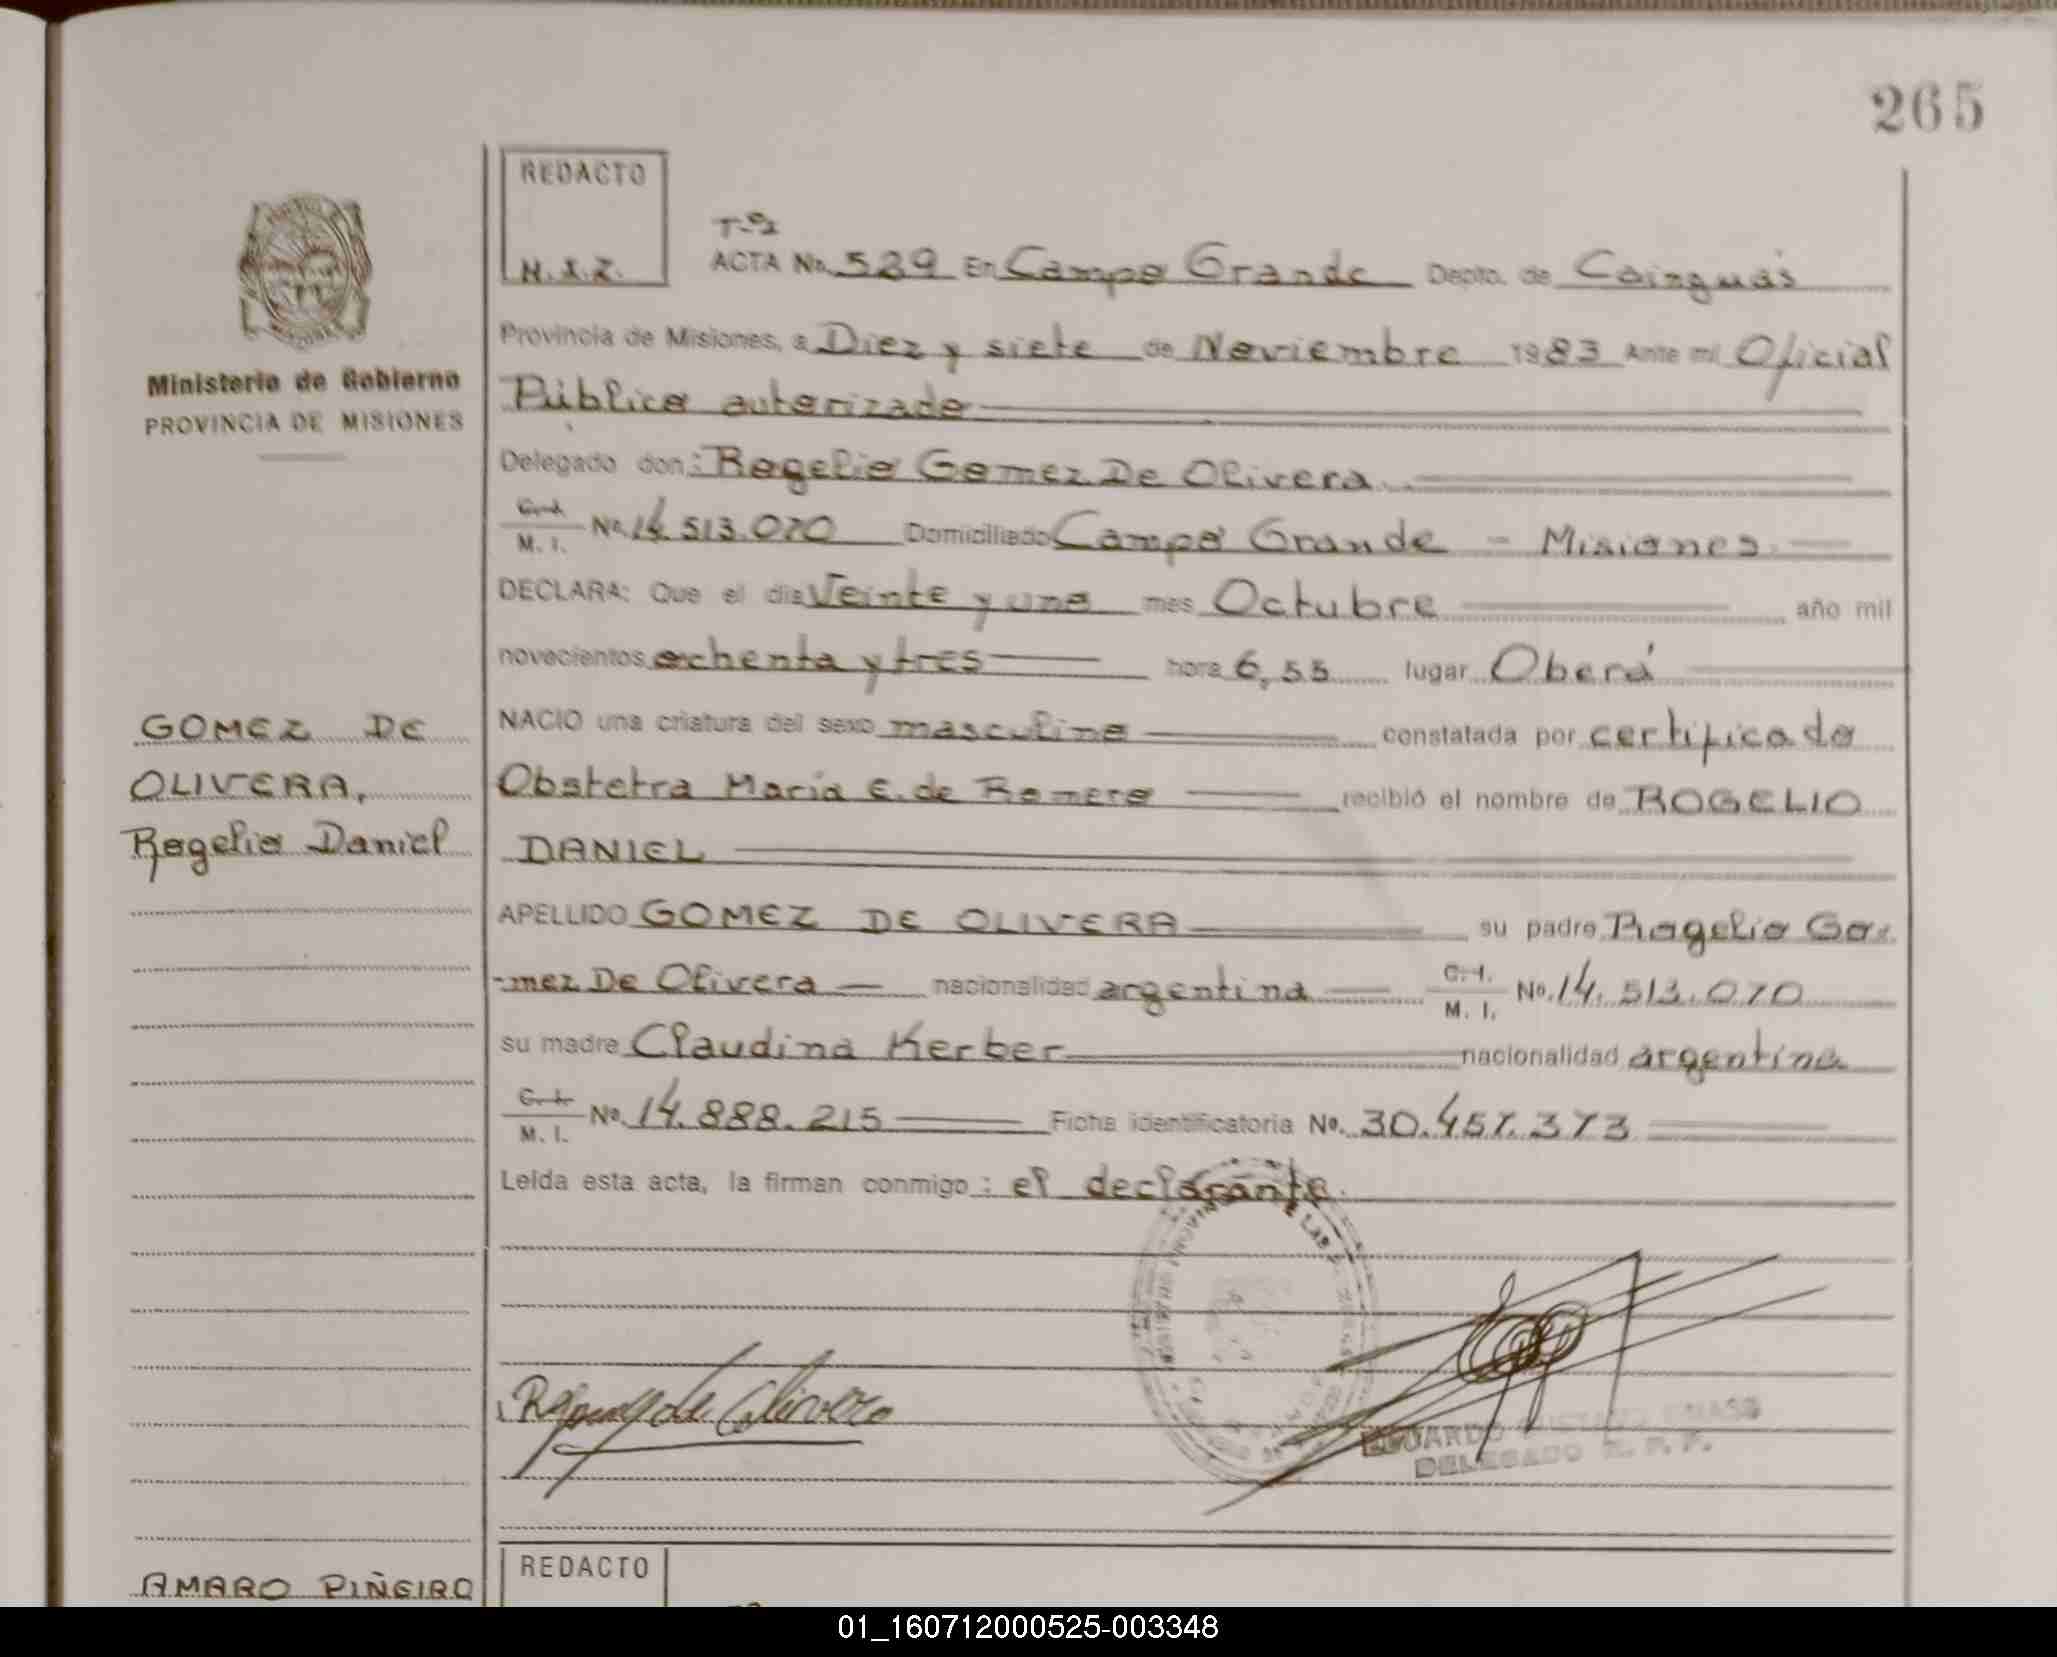 265
REDACTO
H.I.Z.
Tº2
ACTA No. 529 En Campo Grande Depto. de Cainguás
Ministerio de Gobierno
PROVINCIA DE MISIONES
Provincia de Misiones, a Diez y siete de Noviembre 1983 Ante mi Oficial
Público autorizado
Delegado don: Rogelio Gomez De Olivera
C.I. M.I. No. 14.513.070 Domiciliado Campo Grande - Misiones
DECLARA: Que el día Veinte y uno mes Octubre año mil
novecientos ochenta y tres hora 6,55 lugar Oberá
NACIO una criatura del sexo masculino constatada por certificado
Obstetra María E. de Romero recibió el nombre de ROGELIO
DANIEL
GOMEZ DE
OLIVERA,
Rogelio Daniel
APELLIDO GOMEZ DE OLIVERA su padre Rogelio Go-
-mez De Olivera nacionalidad argentina C.I. M.I. No. 14.513.070
su madre Claudina Kerber nacionalidad argentina
C.I. M.I. No. 14.888.215 Ficha identificatoria No. 30.457.373
Leída esta acta, la firman conmigo: el declarante.
EDUARDO
DELEGADO R. P. P.
REDACTO
AMARO PIÑEIRO
01_160712000525-003348